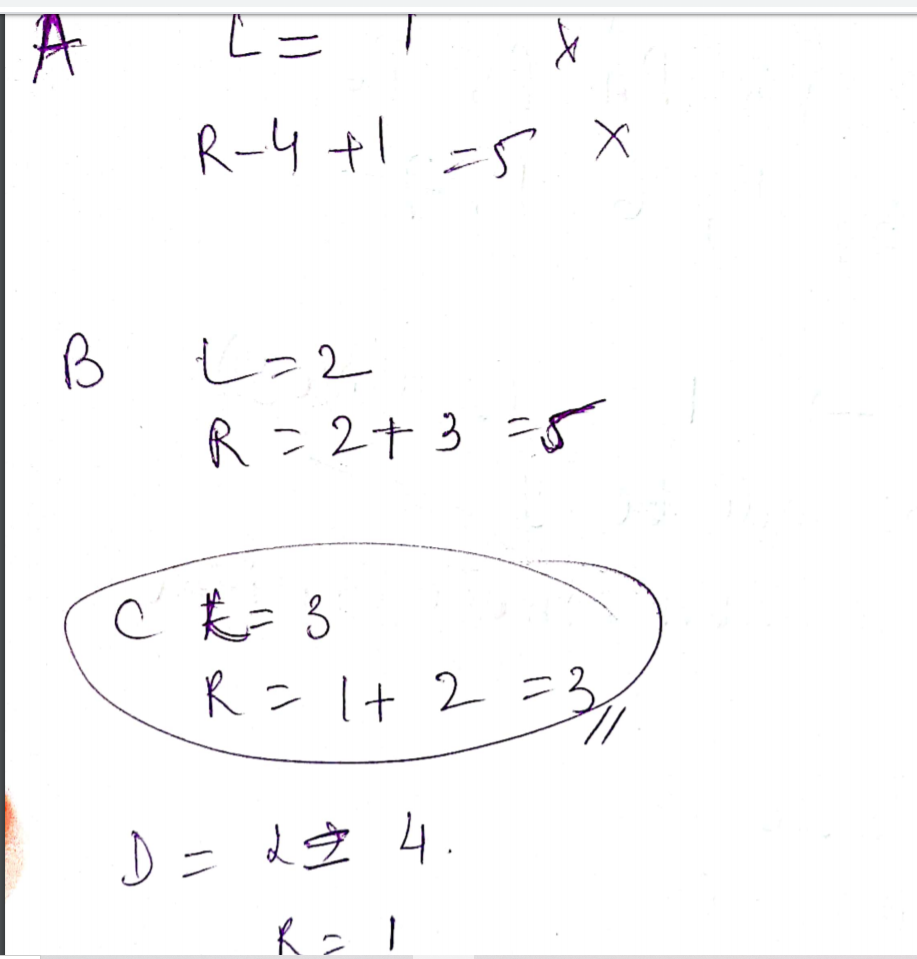 A L = 1 x
R-4 +1 =5 x
B L = 2
R = 2+ 3 =5
C L = 3
R = 1+ 2 =3 //
D = L = 4.
R = 1